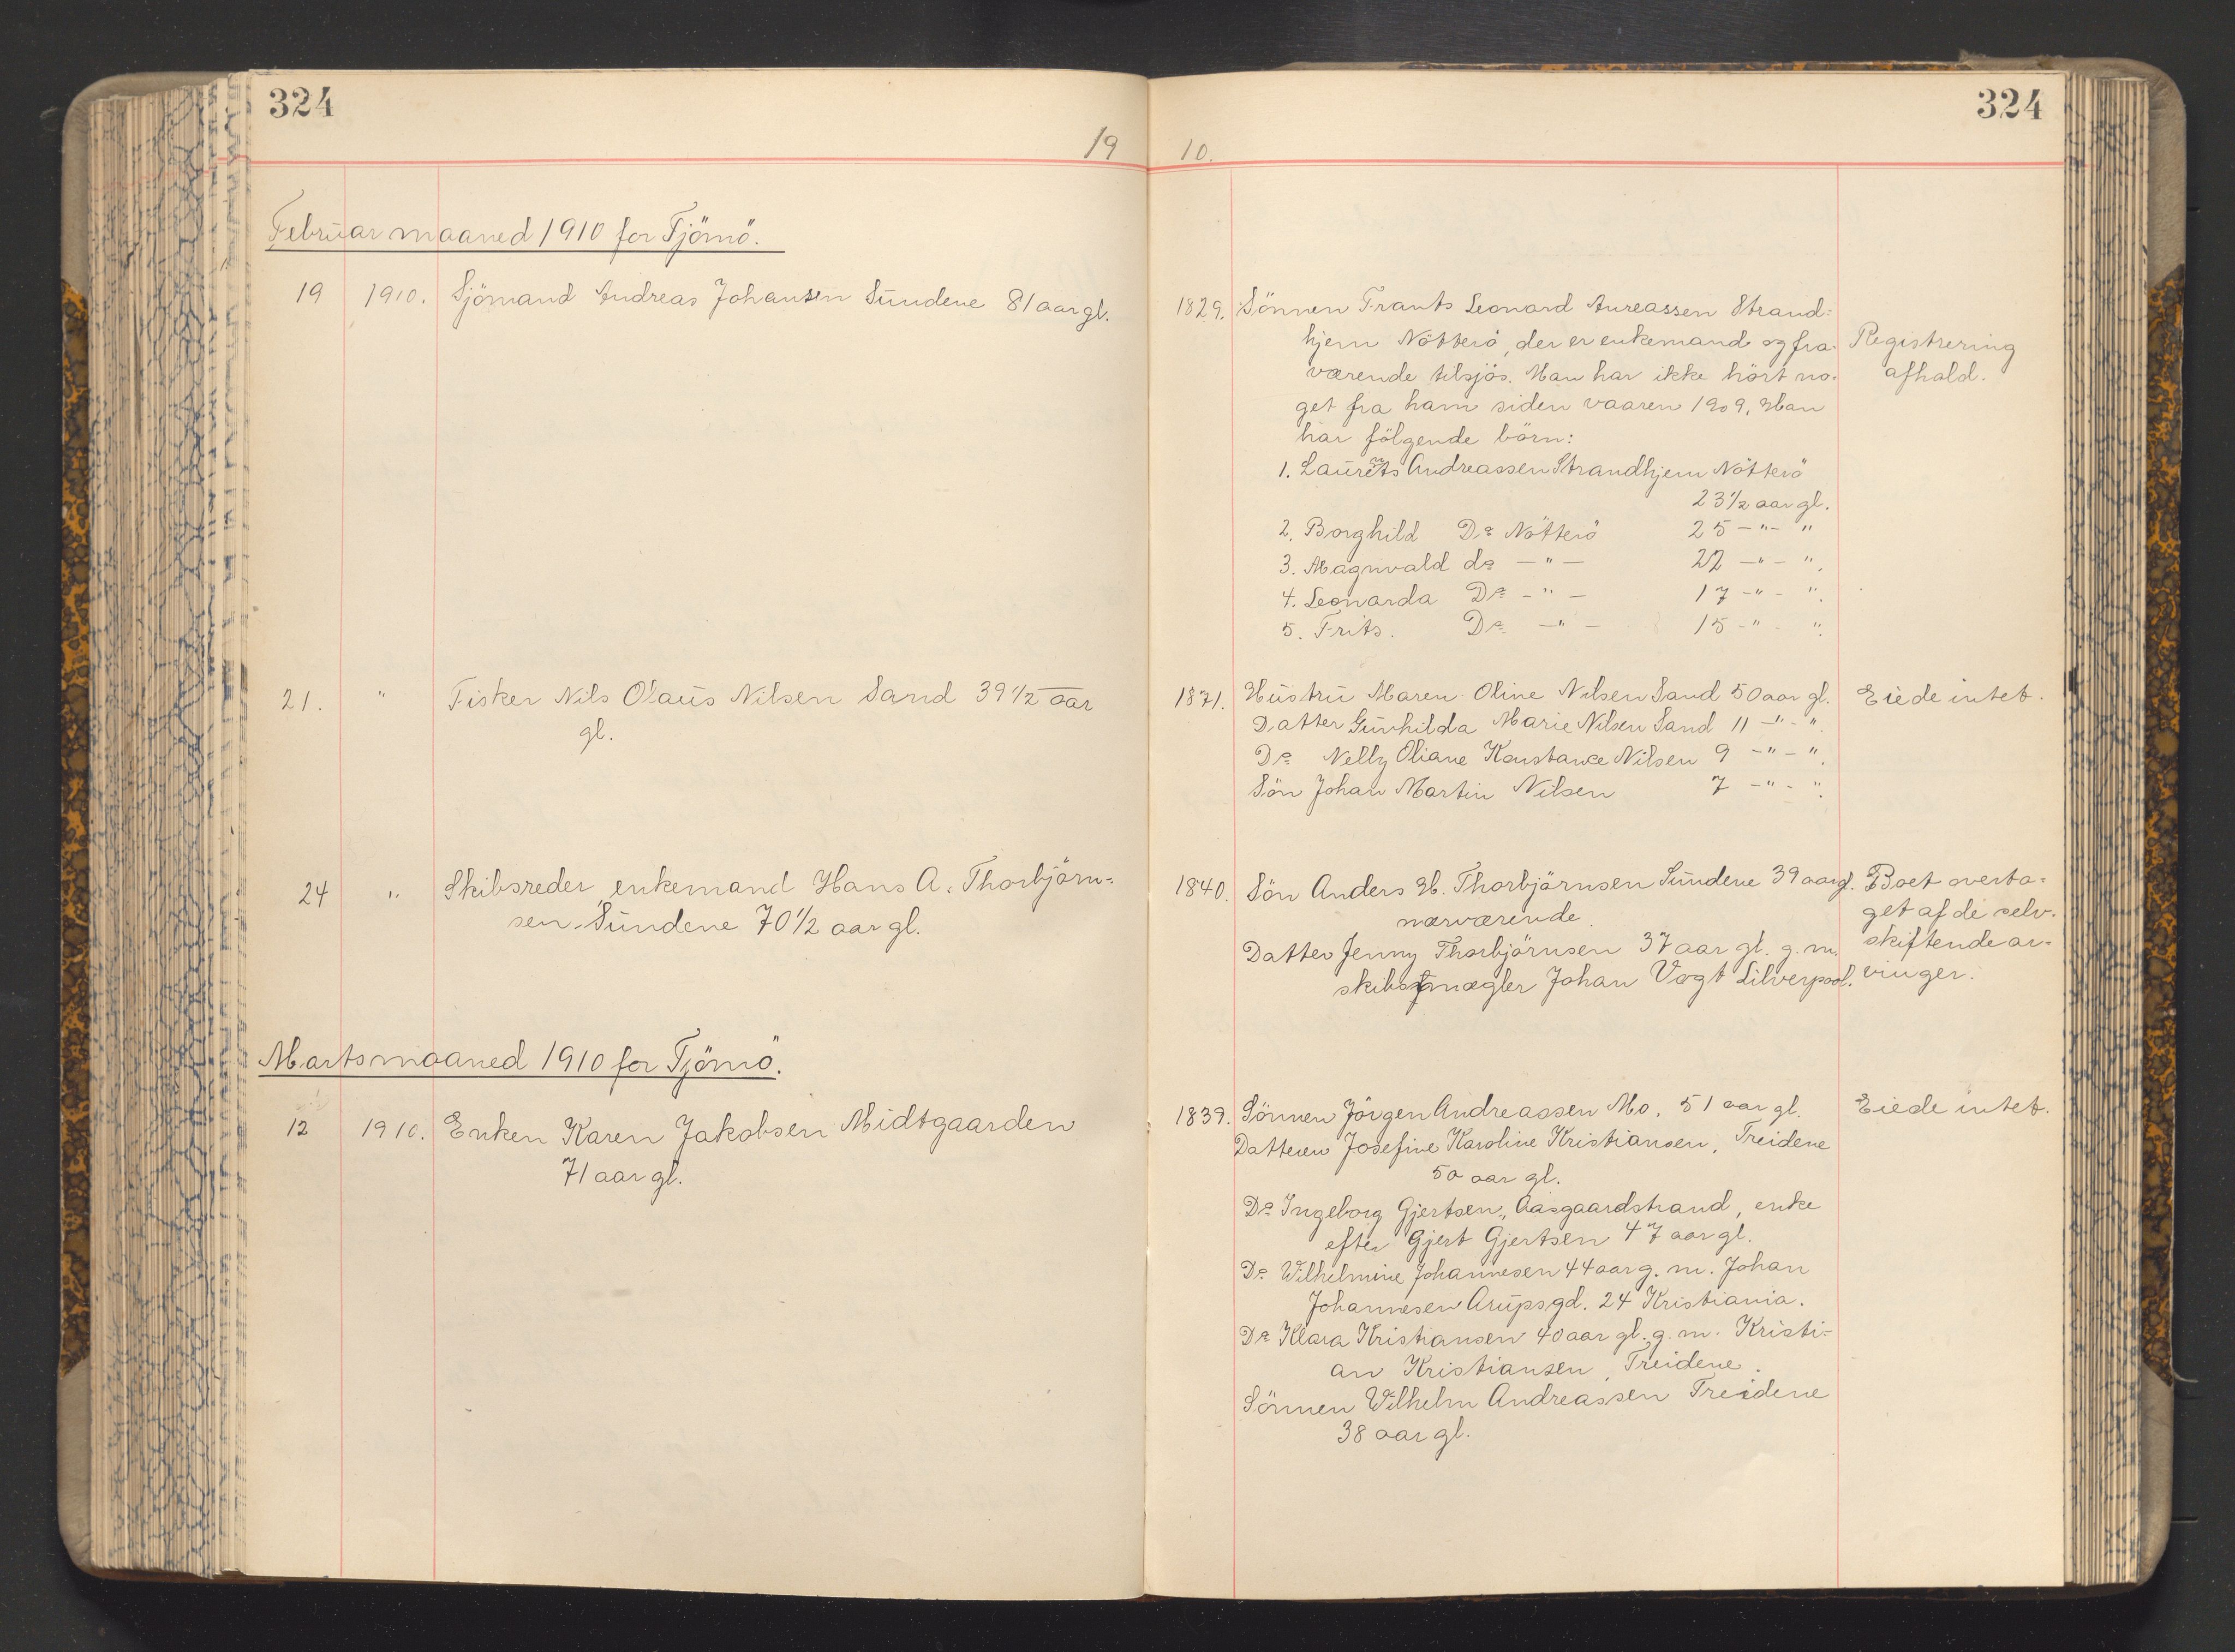 324
324
19
10.
Februar maaned 1910 for Tjömö.
19 1910. Sjömand Andreas Johansen Sundene 81 aar gl.
1829. Sönnen Frants Leonard Anreassen Strand-
hjem Nötterö, der er enkemand og fra-
værende tilsjös. Man har ikke hört no-
get fra ham siden vaaren 1909. Han
har fölgende börn:
1. Laurents Andreassen Strandhjem Nötterö
23 1/2 aar gl.
2. Borghild Do Nötterö 25 -"- "
3. Magnvald do -"- 22 -"- ".
4. Leonarda Do -"- 17 -"- ".
5. Frits. Do -"- 15 -"- ".
Registrering
afhold.
21. " Fisker Nils Olaus Nilsen Sand 39 1/2 aar
gl.
1871. Hustru Maren Oline Nilsen Sand 50 aar gl.
Datter Gunhilda Marie Nilsen Sand 11 -"- ".
Do Nelly Oliane Konstance Nilsen 9 -"- ".
Sön Johan Martin Nilsen 7 -"- ".
Eiede intet.
24 " Skibsreder, enkemand Hans A. Thorbjörn-
sen, Sundene 70 1/2 aar gl.
1840. Sön Anders H. Thorbjörnsen Sundene 39 aar gl.
nærværende.
Datter Jenny Thorbjörnsen 37 aar gl. g. m.
skibsmægler Johan Vogt Lilverpool.
Boet overta-
get af de selv-
skiftende ar-
vinger.
Martsmaaned 1910 for Tjömö.
12 1910. Enken Karen Jakobsen Midtgaarden
71 aar gl.
1839. Sönnen Jörgen Andreassen Mo. 51 aar gl.
Datteren Josefine Karoline Kristiansen, Treidene
50 aar gl.
Do Ingeborg Gjertsen, Aasgaardstrand, enke
efter Gjert Gjertsen 47 aar gl.
Do Wilhelmine Johannesen 44 aar g. m. Johan
Johannesen Arupsgd. 24 Kristiania.
Do Klara Kristiansen 40 aar gl. g. m. Kristi-
an Kristiansen, Treidene.
Sönnen Wilhelm Andreassen Treidene
38 aar gl.
Eiede intet.